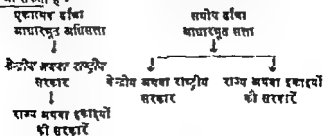 एकात्मक ढाँचा
आधारभूत अधिसत्ता
केन्द्रीय अथवा राष्ट्रीय
सरकार
राज्य अथवा इकाइयों
की सरकारें
संघीय ढाँचा
आधारभूत सत्ता
केन्द्रीय अथवा राष्ट्रीय
सरकार
राज्य अथवा इकाइयों
की सरकारें